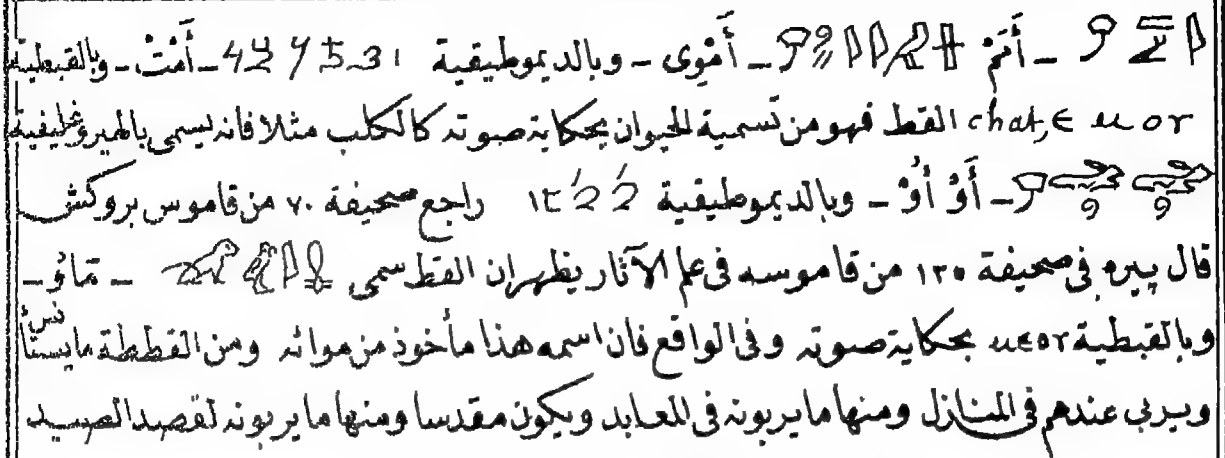 أَتَمْ ـ أَمْوِى ـ وبالديموطيقية ـ أَمْتْ ـ وبالقبطية
chat, ϵ ⲙⲟⲩ القط فهو من تسمية الحيوان بحكاية صوته كالكلب مثلا فانه يسمى بالهيروغليفية
ـ أَوْ أُوْ ـ وبالديموطيقية راجع صحيفة ٧٠ من قاموس بروكش
قال پيره فى صحيفة ١٢٥ من قاموسه فى علم الآثار يظهر ان القط سمى ـ مَاوُ ـ
وبالقبطية بحكاية صوته وفى الواقع فان اسمه هذا مأخوذ من موائه ومن القططة ما يستأنس
ويربى عندهم فى المنازل ومنها ما يربونه فى المعابد ويكون مقدسا ومنها ما يربونه لقصد الصيد